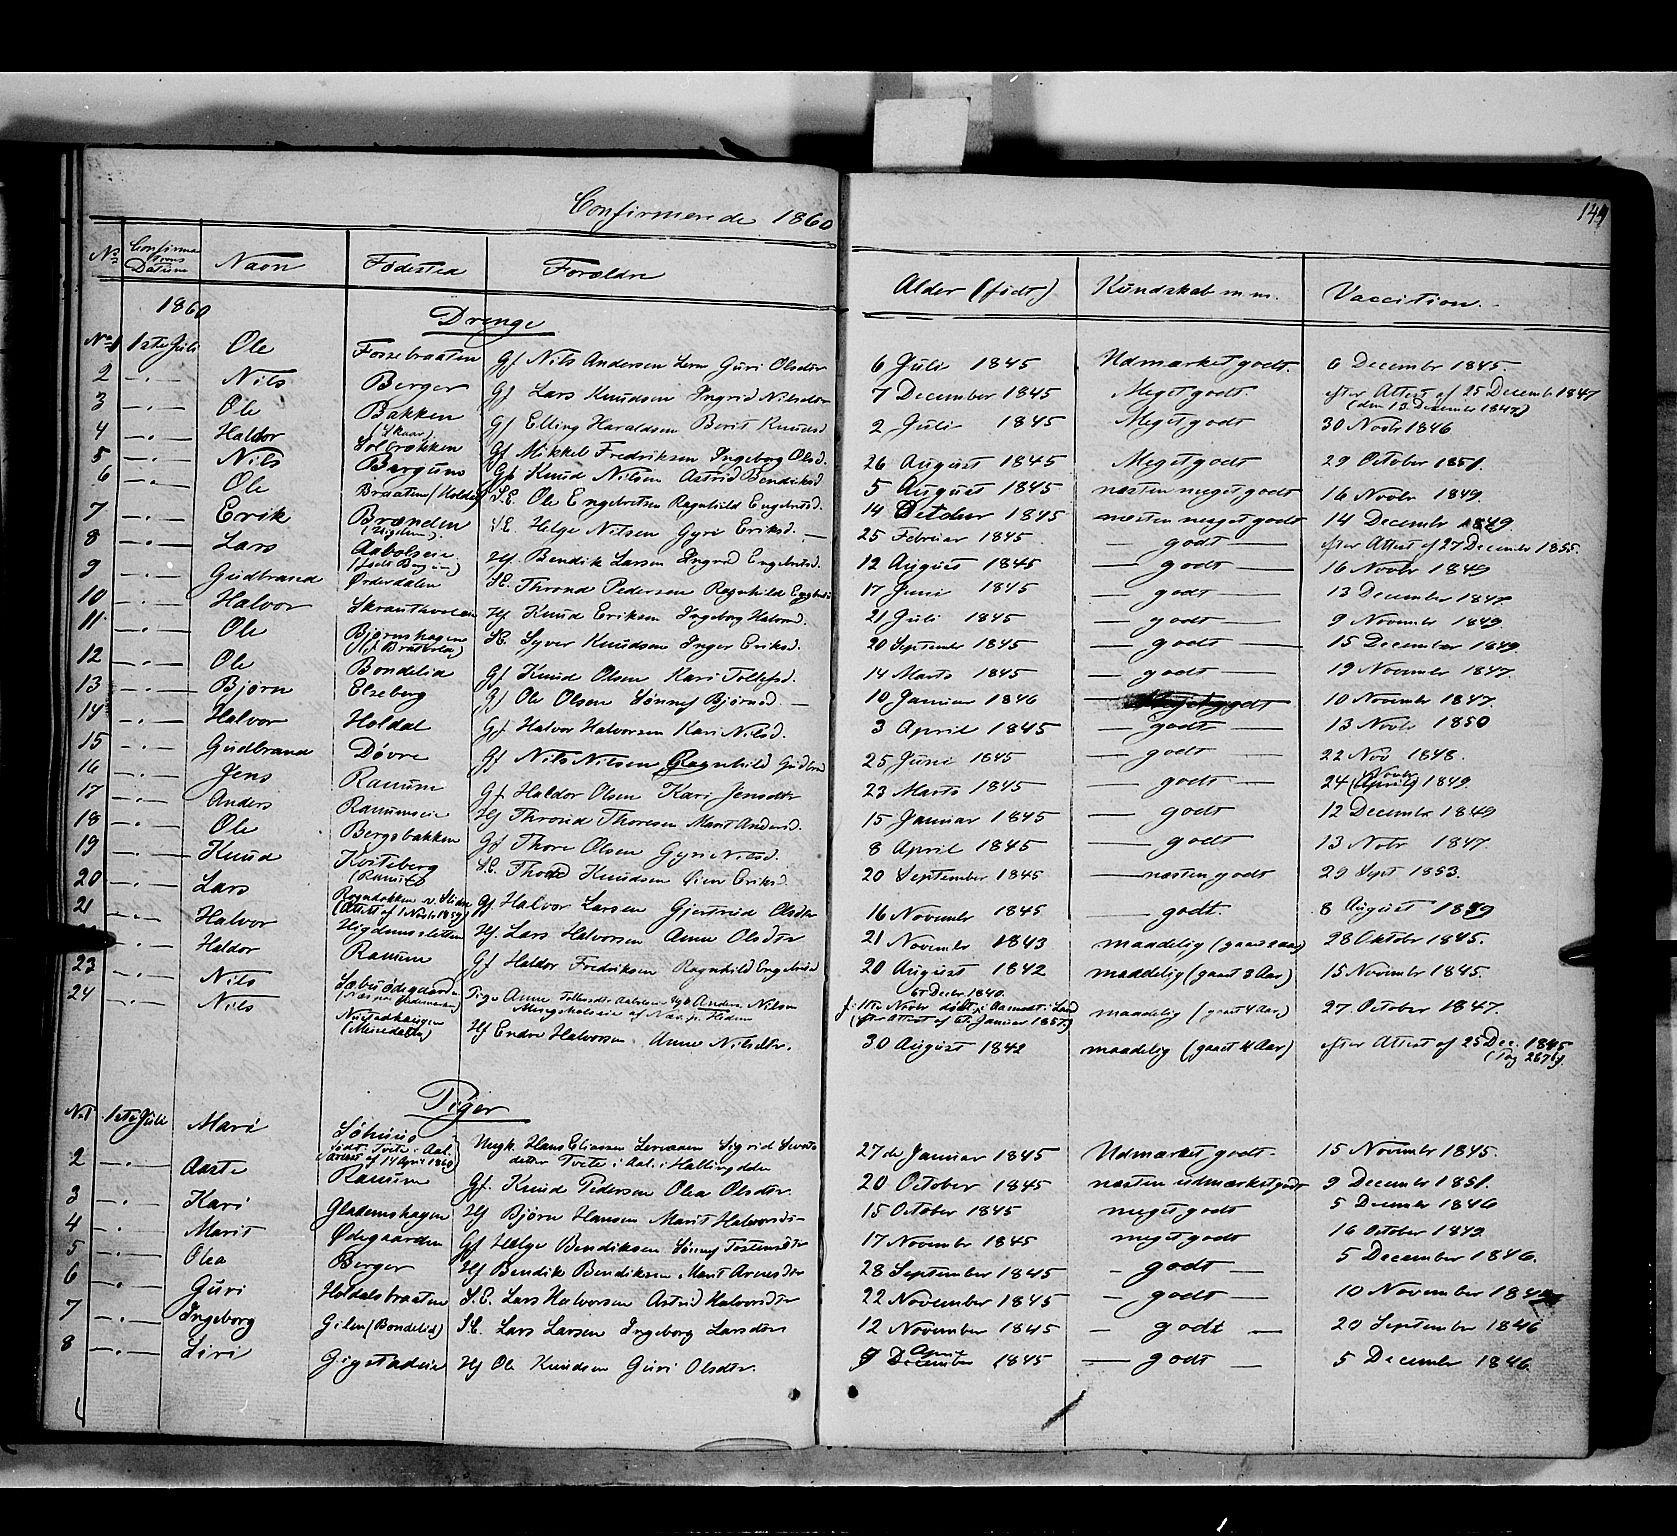 Confirmerede 1860
149
No Confirmations Datum Navn Fødested Forældre Alder (født) Kundskab m.m. Vaccination.
1860
Drenge
No 1 1ste Juli Ole Fossebraaten Gf Nils Andersen Guri Olsdtr 6 Juli 1845 Udmærket godt. 6 December 1845.
2 Nils Berger Gf Lars Knudsen Ingrid Nilsdtr 7 December 1845 Meget godt. efter Attest af 25 December 1847 (den 13 December 1847)
3 Ole Bakken (Skaar) Gf Elling Haraldsen Berit Knudsd. 2 Juli 1845 Meget godt 30 Novbr 1846
4 Haldor Solbrekken Gf Mikkel Fredriksen Ingeborg Olsd. 26 August 1845 Meget godt 29 October 1851.
5 Nils Bergum Gf Knud Nilsen Astrid Bendiksd 5 August 1845 næsten meget godt 16 Novbr 1849.
6 Ole Braaten (Holdal) S.E. Ole Engebretsen Ragnhild Engebretsd. 14 October 1845 næsten meget godt 14 December 1849.
7 Erik Brænden S.E. Helge Nilsen Gyri Eriksd. 25 Februar 1845. godt efter Attest af 27 December 1855.
8 Lars Hf. Bendik Larsen Ingrid Engebretsd. 12 August 1845 godt 16 Novbr 1849
9 Gudbrand Ørderdalen S.E. Thrond Pedersen Ragnhild 17 Juni 1845 godt 13 December 1847.
10 Halvor Hf. Knud Eriksen Ingeborg Halvord. 21 Juli 1845 godt 9 November 1849.
11 Ole Bjørnshagen S.E. Syver Knudsen Inger Eriksd. 20 September 1845 godt 15 December 1849
12 Ole Bondelia Gf Knud Olsen Kari Tollefsd. 14 Marts 1845 godt 19 November 1847.
13 Bjørn Elseberg Gf Ole Olsen Sønnef Bjørnsd 10 Januar 1846 10 November 1847.
14 Halvor Holdal Gf Halvor Halvorsen Kari Nilsd. 3 April 1845 godt 13 Novbr 1850
15 Gudbrand Døvre Gf Nils Nilsen Ragnhild 25 Juni 1845 godt 22 Nov 1848.
16 Jens Ranum Gf Haldor Olsen Kari Jensdtr 23 Marts 1845 godt 24 (April) Novbr 1849.
17 Anders Ranumseie Hf Thrond Thoresen Marit Andersd. 15 Januar 1845 godt 12 December 1849
18 Ole Bergsbakken Gf Thore Olsen Gyri Nilsd. 8 April 1845 godt 13 Novbr 1847.
19 Knud Kviteberg (Ranum) S.E. Knudsen Eriksd. 20 September 1845 næsten godt 29 Sept 1853.
20 Lars (Attest af 1 Novbr 1859) Gf. Halvor Larsen Gjertrud Olsdtr 16 November 1845 godt. 8 August 1849
21 Halvor Høgdumssletten Hf. Lars Halvorsen Anne Olsdtr 21 November 1843 maadelig 28 Oktober 1845.
Haldor Ranum Gf Haldor Fredriksen Ragnhild 20 August 1842 maadelig (gaaet 3 Aar) 15 November 1845.
23 Nils Pige Anne Anders Nilsen 6te Decbr 1840. maadelig (gaaet 4 Aar) 27. October 1847.
24 Nils Hf Endre Halvorsen Anne Nilsdtr. 30 August 1842 maadelig (gaaet 4 Aar) efter Attest af 25 Dec. 1845
Piger
No 1 1ste Juli Mari Ungk. Hans Eliassen Sigrid datter Tvete i Aal i Hallingdalen 27de Januar 1845 Udmærket godt. 15 November 1845.
født Tveite i Aal (Attest af 14 April 1860)
2 Aaste Ranum Gf. Knud Pedersen Olea Olsdtr. 20 October 1845 næsten udmærket godt 9 December 1851.
3 Kari Gladenshagen Hf Bjørn Hansen Marit Halvorsdtr 15 October 1845 meget godt 5 December 1846
4 Marit Ødegaarden Gf Helge Bendiksen Sønnef Tostensdtr 17 November 1845 meget godt 16 October 1849.
5 Olea Berger Hf Bendik Bendiksen Marit Arnesdtr 28 September 1845 godt 5 December 1846.
6 Guri Holdalsbraaten S.E. Lars Halvorsen Astrid Halvorsdtr 22 November 1845 godt 10 November
7 Ingeborg Gilen (Bondelid) S.E. Lars Larsen Ingeborg Larsdtr 12 November 1845 godt 20 September 1846
8 Siri Gigstadeie Hf Ole Knudsen Guri Olsdtr. 9 December April 1845 godt 5 December 1846.